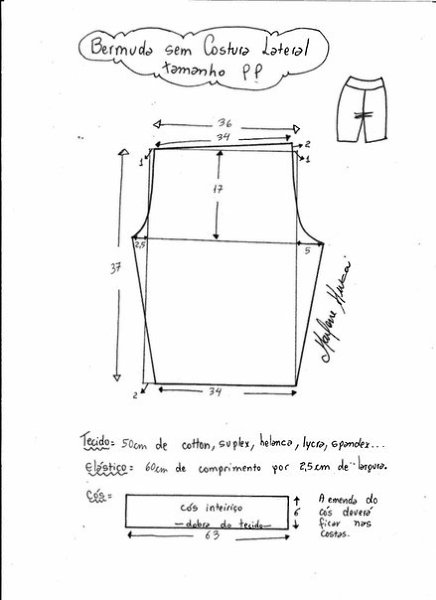 Bermuda sem Costura Lateral
tamanho PP
36
34
2
1
1
17
37
2,5
5
2
34
Marlene Mukai
Tecido = 50cm de cotton, suplex, helanca, lycra, spandex...
Elástico = 60cm de comprimento por 2,5cm de largura.
Cós =
cós inteiriço
dobra do tecido
63
6
A emenda do
cós deverá
ficar nas
costas.